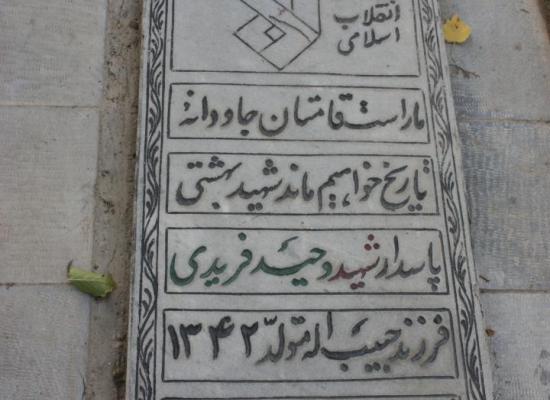 انقلاب
اسلامی
ما راست قامتان جاودانهٔ
تاریخ خواهیم ماند شهید بهشتی
پاسدار شهید وحید فریدی
فرزند حبیب اله متولد ۱۳۴۲